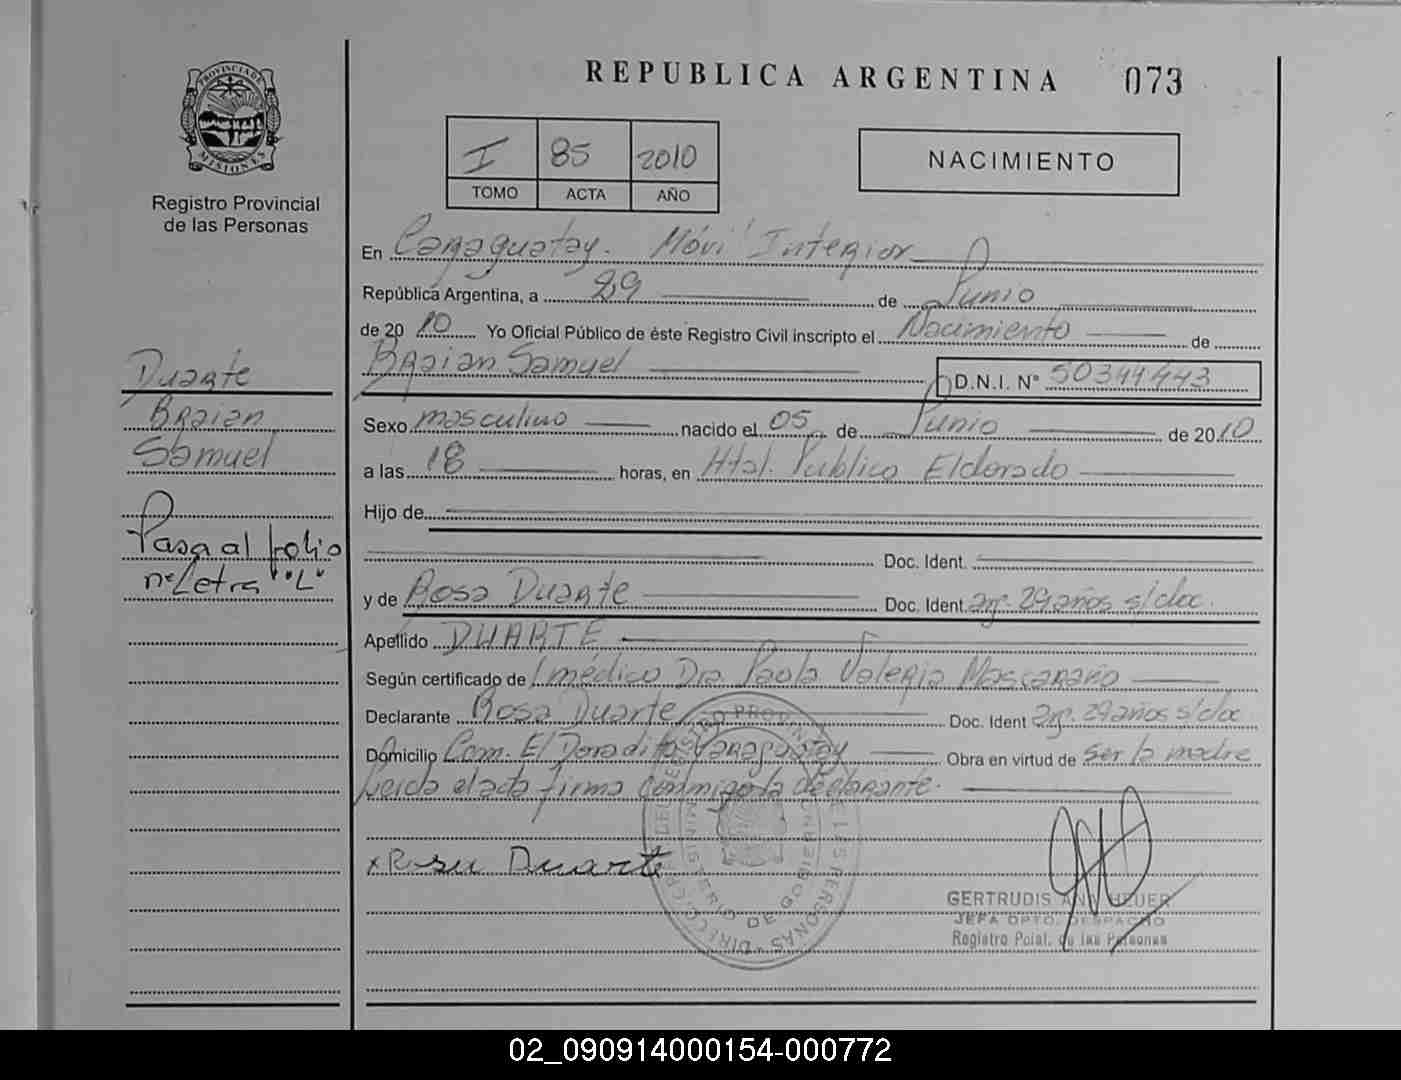 REPUBLICA ARGENTINA 073
PROVINCIA DE
MISIONES
Registro Provincial
de las Personas
I 85 2010
TOMO ACTA AÑO
NACIMIENTO
En Caraguatay. Móvil Interior
República Argentina, a 29 de Junio
de 2010 Yo Oficial Público de éste Registro Civil inscripto el Nacimiento de
Braian Samuel D.N.I. N° 50344443
Duarte
Braian
Samuel
Pasa al folio
n° Letra "L"
Sexo masculino nacido el 05 de Junio de 2010
a las 18 horas, en Htal. Publico Eldorado
Hijo de
Doc. Ident.
y de Rosa Duarte Doc. Ident. arg. 29 años s/doc.
Apellido DUARTE
Según certificado de l médico Dra Paola Valeria Mascaraño
Declarante Rosa Duarte Doc. Ident arg. 29 años s/doc
Domicilio Com. El Doradito Caraguatay Obra en virtud de ser la madre
Leida el acta firma conmigo la declarante.
x Rosa Duarte
GERTRUDIS ANA HEUER
JEFA DPTO. DESPACHO
Registro Pcial. de las Personas
MINISTERIO DE GOBIERNO
02_090914000154-000772